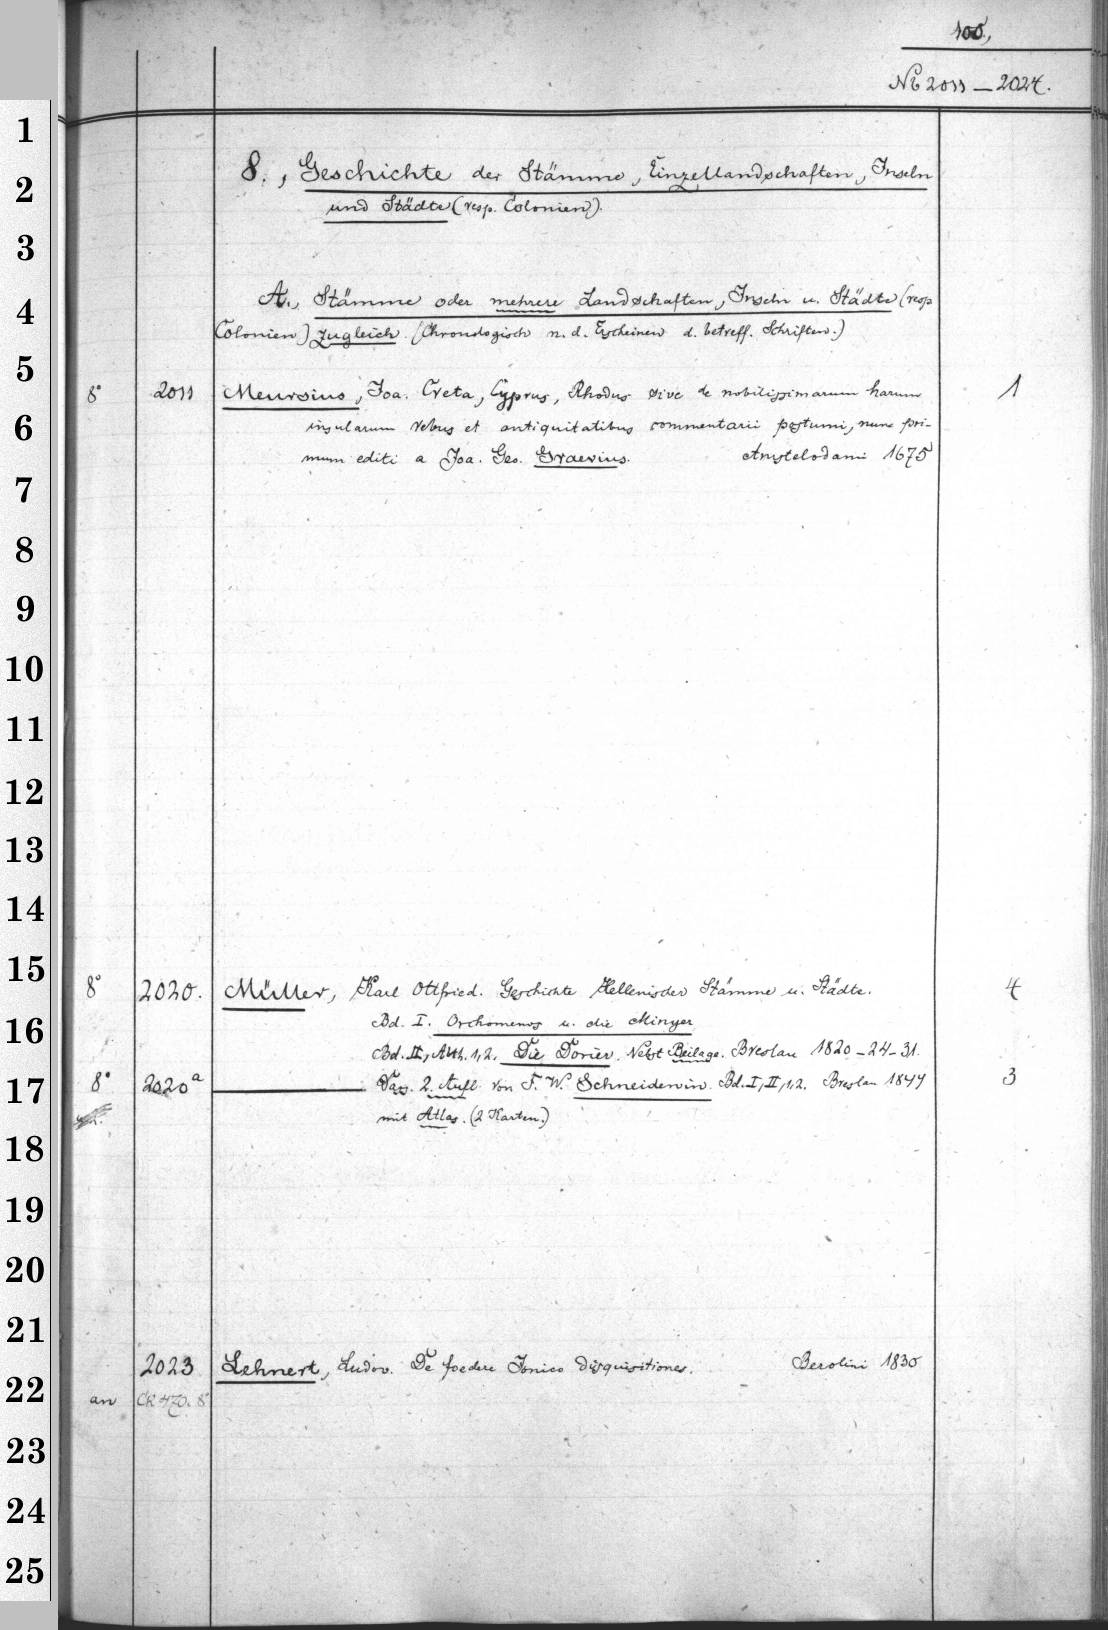 105,
No 2011 — 2024.
8., Geschichte der Stämme, Einzellandschaften, Inseln
und Städte (resp. Colonien).
A., Stämme oder mehrere Landschaften, Inseln u. Städte (resp
Colonien) zugleich. (Chronologisch n. d. Erscheinen d. betreff. Schriften.)
8° 2011 Meursius, Joa. Creta, Cyprus, Rhodus sive de nobilissimarum harum 1
insularum rebus et antiquitatibus commentarii postumi, nunc pri-
mum editi a Joa. Geo. Graevius. Amstelodami 1675
8° 2020. Müller, Karl Ottfried. Geschichte Hellenischer Stämme u. Städte. 4
Bd. I. Orchomenos u. die Minyer
Bd. II, Abth. 1, 2. Die Dorier. Nebst Beilage. Breslau 1820 – 24 – 31.
8° 2020a ——— Das. 2. Aufl. von F. W. Schneidewin. Bd. I, II, 1, 2. Breslau 1844 3
mit Atlas. (2 Karten.)
2023 Lehnert, Ludov. De foedere Ionico disquisitiones. Berolini 1830
an Ck 470. 8°
1
2
3
4
5
6
7
8
9
10
11
12
13
14
15
16
17
18
19
20
21
22
23
24
25